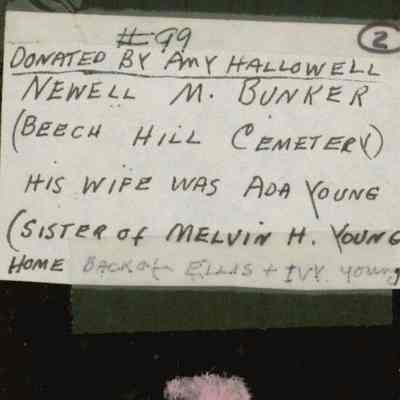 #99
2
DONATED BY AMY HALLOWELL
NEWELL M. BUNKER
(BEECH HILL CEMETERY)
HIS WIFE WAS ADA YOUNG
(SISTER of MELVIN H. YOUNG
HOME BACK of ELLIS + IVY young